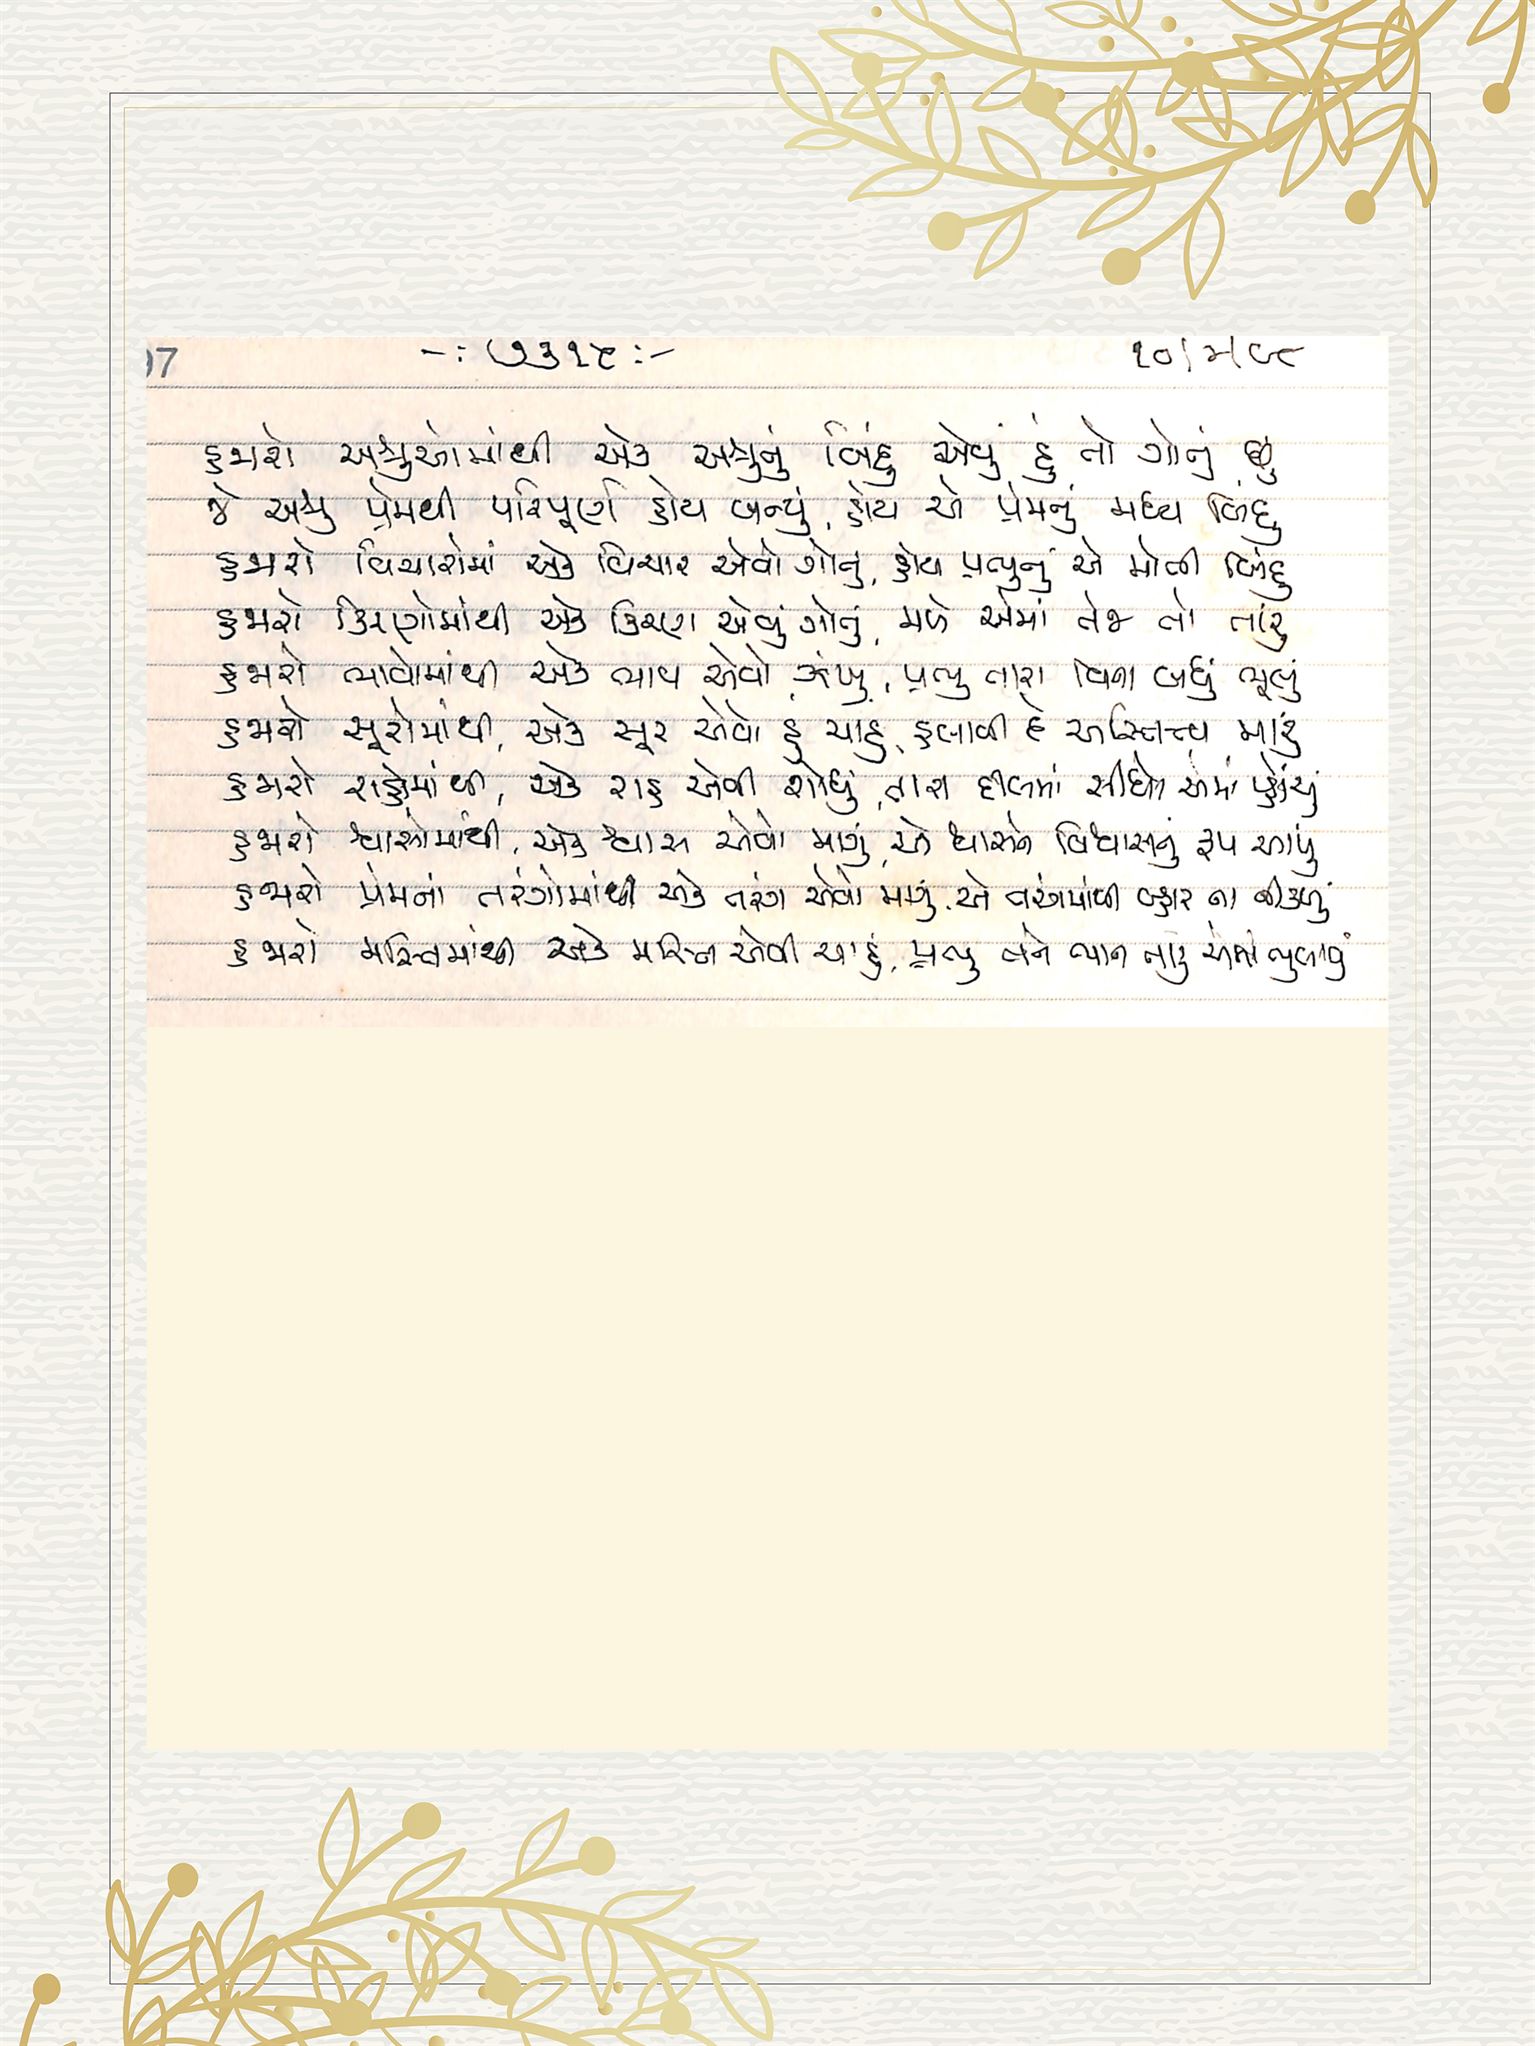 07 -: ૭૩૧૮ :- ૧૦/૫/૯૮
હજારો અશ્રુઓમાંથી એક અશ્રુનું બિંદુ એવું હું તો ગોતું છું
જે અશ્રુ પ્રેમથી પરિપૂર્ણ હોય બન્યું, હોય એ પ્રેમનું મધ્ય બિંદુ
હજારો વિચારોમાં એક વિચાર એવો ગોતું, હોય પ્રભુનું એ મોતી બિંદુ
હજારો કિરણોમાંથી એક કિરણ એવું ગોતું, મળે એમાં તેજ તો તારું
હજારો ભાવોમાંથી એક ભાવ એવો ઝંખુ, પ્રભુ તારા વિના બધું ભૂલું
હજારો સૂરોમાંથી, એક સૂર એવો હું ચાહું, હલાવી દે અસ્તિત્વ મારું
હજારો રાહોમાંથી, એક રાહ એવી શોધું, તારા દીલમાં સીધો એમાં પહોંચું
હજારો શ્વાસોમાંથી, એક શ્વાસ એવો માગું, એ શ્વાસને વિશ્વાસનું રૂપ આપું
હજારો પ્રેમનાં તરંગોમાંથી એક તરંગ એવો માગું, એ તરંગમાંથી બહાર ના નીકળું
હજારો મસ્તિમાંથી એક મસ્તિ એવી ચાહું, પ્રભુ તને ભાન તારું એમાં ભુલાવું